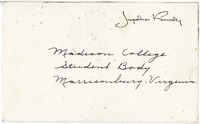 Jacqueline Kennedy
Madison College
Student Body
Harrisonburg, Virginia